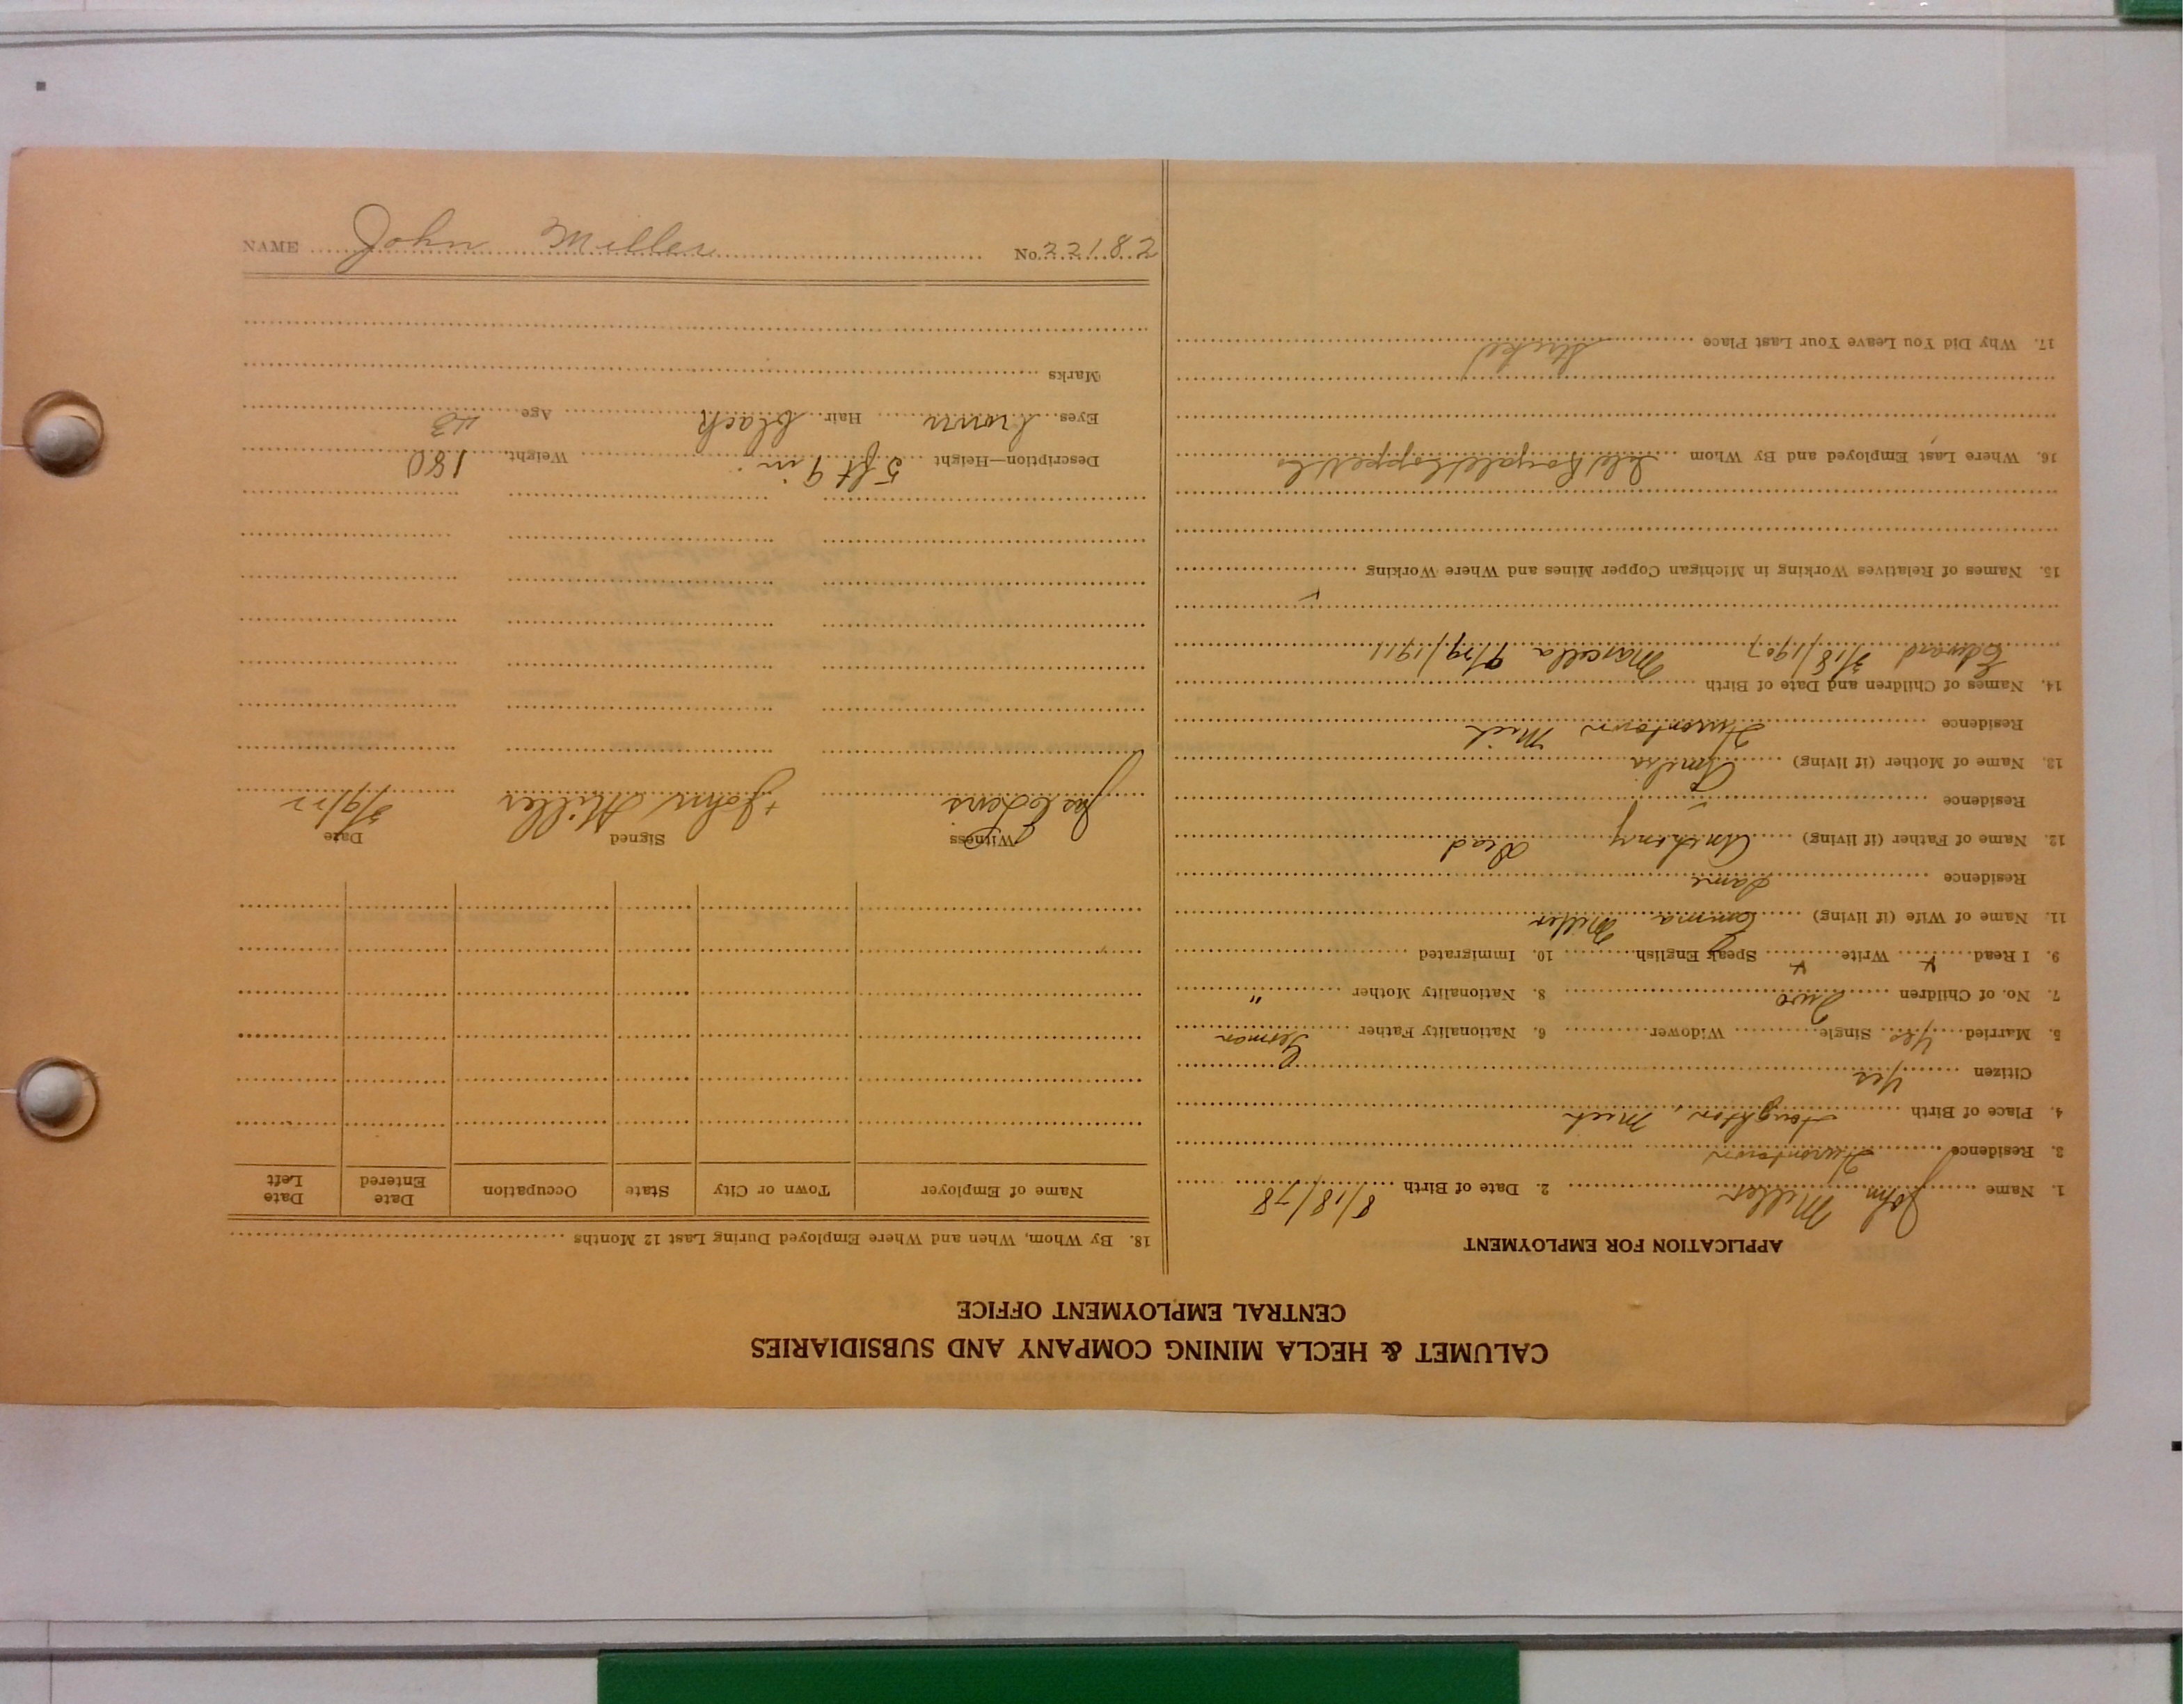 CALUMET & HECLA MINING COMPANY AND SUBSIDIARIES
CENTRAL EMPLOYMENT OFFICE
APPLICATION FOR EMPLOYMENT
1. Name John Miller 2. Date of Birth 8/18/78
3. Residence Hurontown
4. Place of Birth Houghton, Mich
Citizen Yes
5. Married Yes Single Widower 6. Nationality Father German
7. No. of Children Two 8. Nationality Mother "
9. I Read Write Speak English 10. Immigrated
11. Name of Wife (if living) Emma Miller
Residence Same
12. Name of Father (if living) Anthony Dead
Residence
13. Name of Mother (if living) Amelia
Residence Hurontown Mich
14. Names of Children and Date of Birth
Edward 3/18/1907 Marcella 9/29/1911
15. Names of Relatives Working in Michigan Copper Mines and Where Working
16. Where Last Employed and By Whom Isle Royale Copper Co
17. Why Did You Leave Your Last Place
18. By Whom, When and Where Employed During Last 12 Months
Name of Employer Town or City State Occupation Date Entered Date Left
Witness Signed Date
Jas + John Miller 3/9/22
Description—Height 5 ft 9 in. Weight 180
Eyes brown Hair black Age 43
Marks
NAME John Miller No. 22182